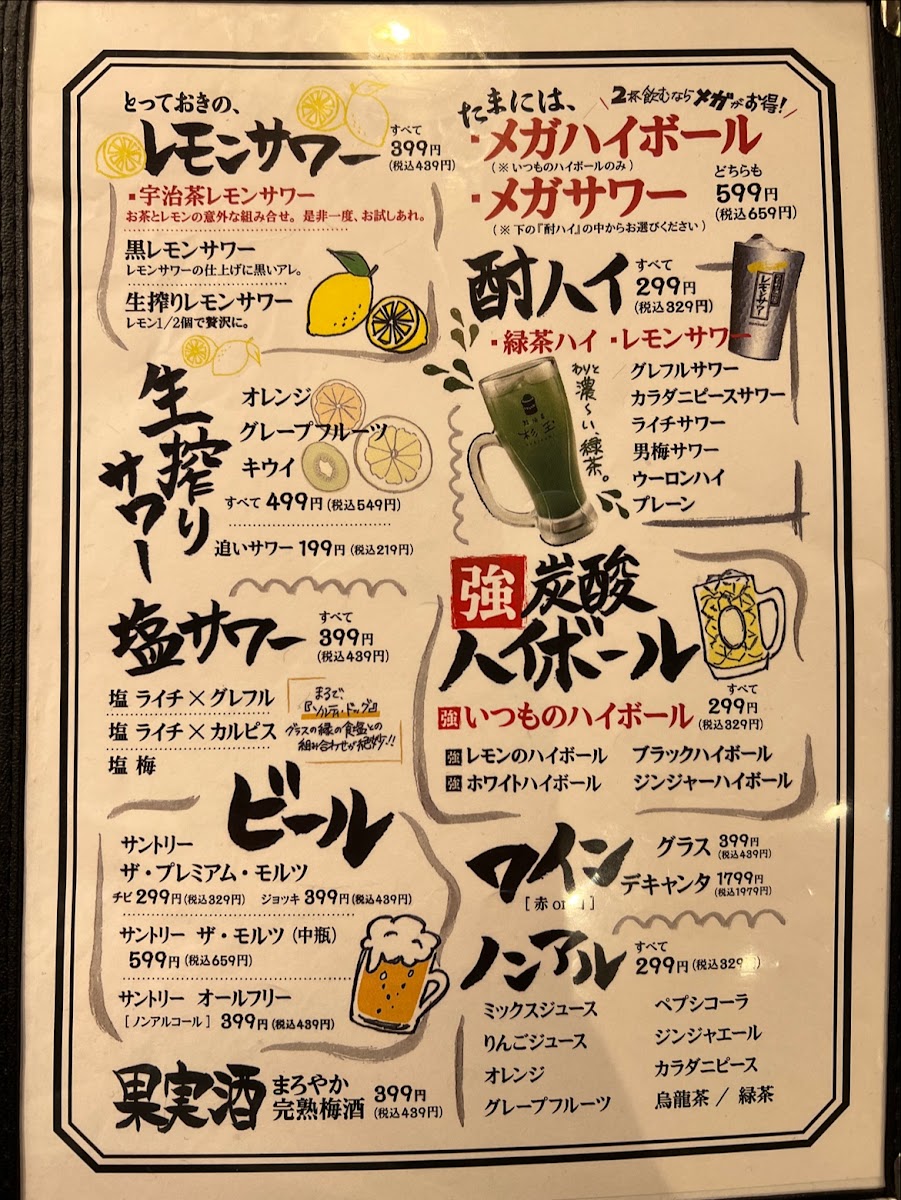 とっておきの、
レモンサワー
すべて
399円
(税込439円)
▪宇治茶レモンサワー
お茶とレモンの意外な組み合せ。是非一度、お試しあれ。
黒レモンサワー
レモンサワーの仕上げに黒いアレ。
生搾りレモンサワー
レモン1/2個で贅沢に。
生搾りサワー
オレンジ
グレープフルーツ
キウイ
すべて 499円(税込549円)
追いサワー 199円(税込219円)
塩サワー
すべて
399円
(税込439円)
塩 ライチ×グレフル
塩 ライチ×カルピス
塩 梅
まるで、
『ソルティ・ドッグ』
グラスの縁の食塩との
組み合わせが絶妙!!
ビール
サントリー
ザ・プレミアム・モルツ
チビ 299円(税込329円) ジョッキ 399円(税込439円)
サントリー ザ・モルツ(中瓶)
599円(税込659円)
サントリー オールフリー
[ノンアルコール] 399円(税込439円)
果実酒
まろやか
完熟梅酒
399円
(税込439円)
たまには、
2杯飲むならメガがお得!
▪メガハイボール
(※いつものハイボールのみ)
▪メガサワー
(※下の『酎ハイ』の中からお選びください)
どちらも
599円
(税込659円)
酎ハイ
すべて
299円
(税込329円)
▪緑茶ハイ ▪レモンサワー
わりと
濃〜い、緑茶。
レモンサワー
杉玉
グレフルサワー
カラダニピースサワー
ライチサワー
男梅サワー
ウーロンハイ
プレーン
強炭酸
ハイボール
すべて
299円
(税込329円)
強 いつものハイボール
強 レモンのハイボール ブラックハイボール
強 ホワイトハイボール ジンジャーハイボール
ワイン
[赤 or ]
グラス 399円
(税込439円)
デキャンタ 1799円
(税込1979円)
ノンアル
すべて
299円(税込329円)
ミックスジュース ペプシコーラ
りんごジュース ジンジャエール
オレンジ カラダニピース
グレープフルーツ 烏龍茶 / 緑茶